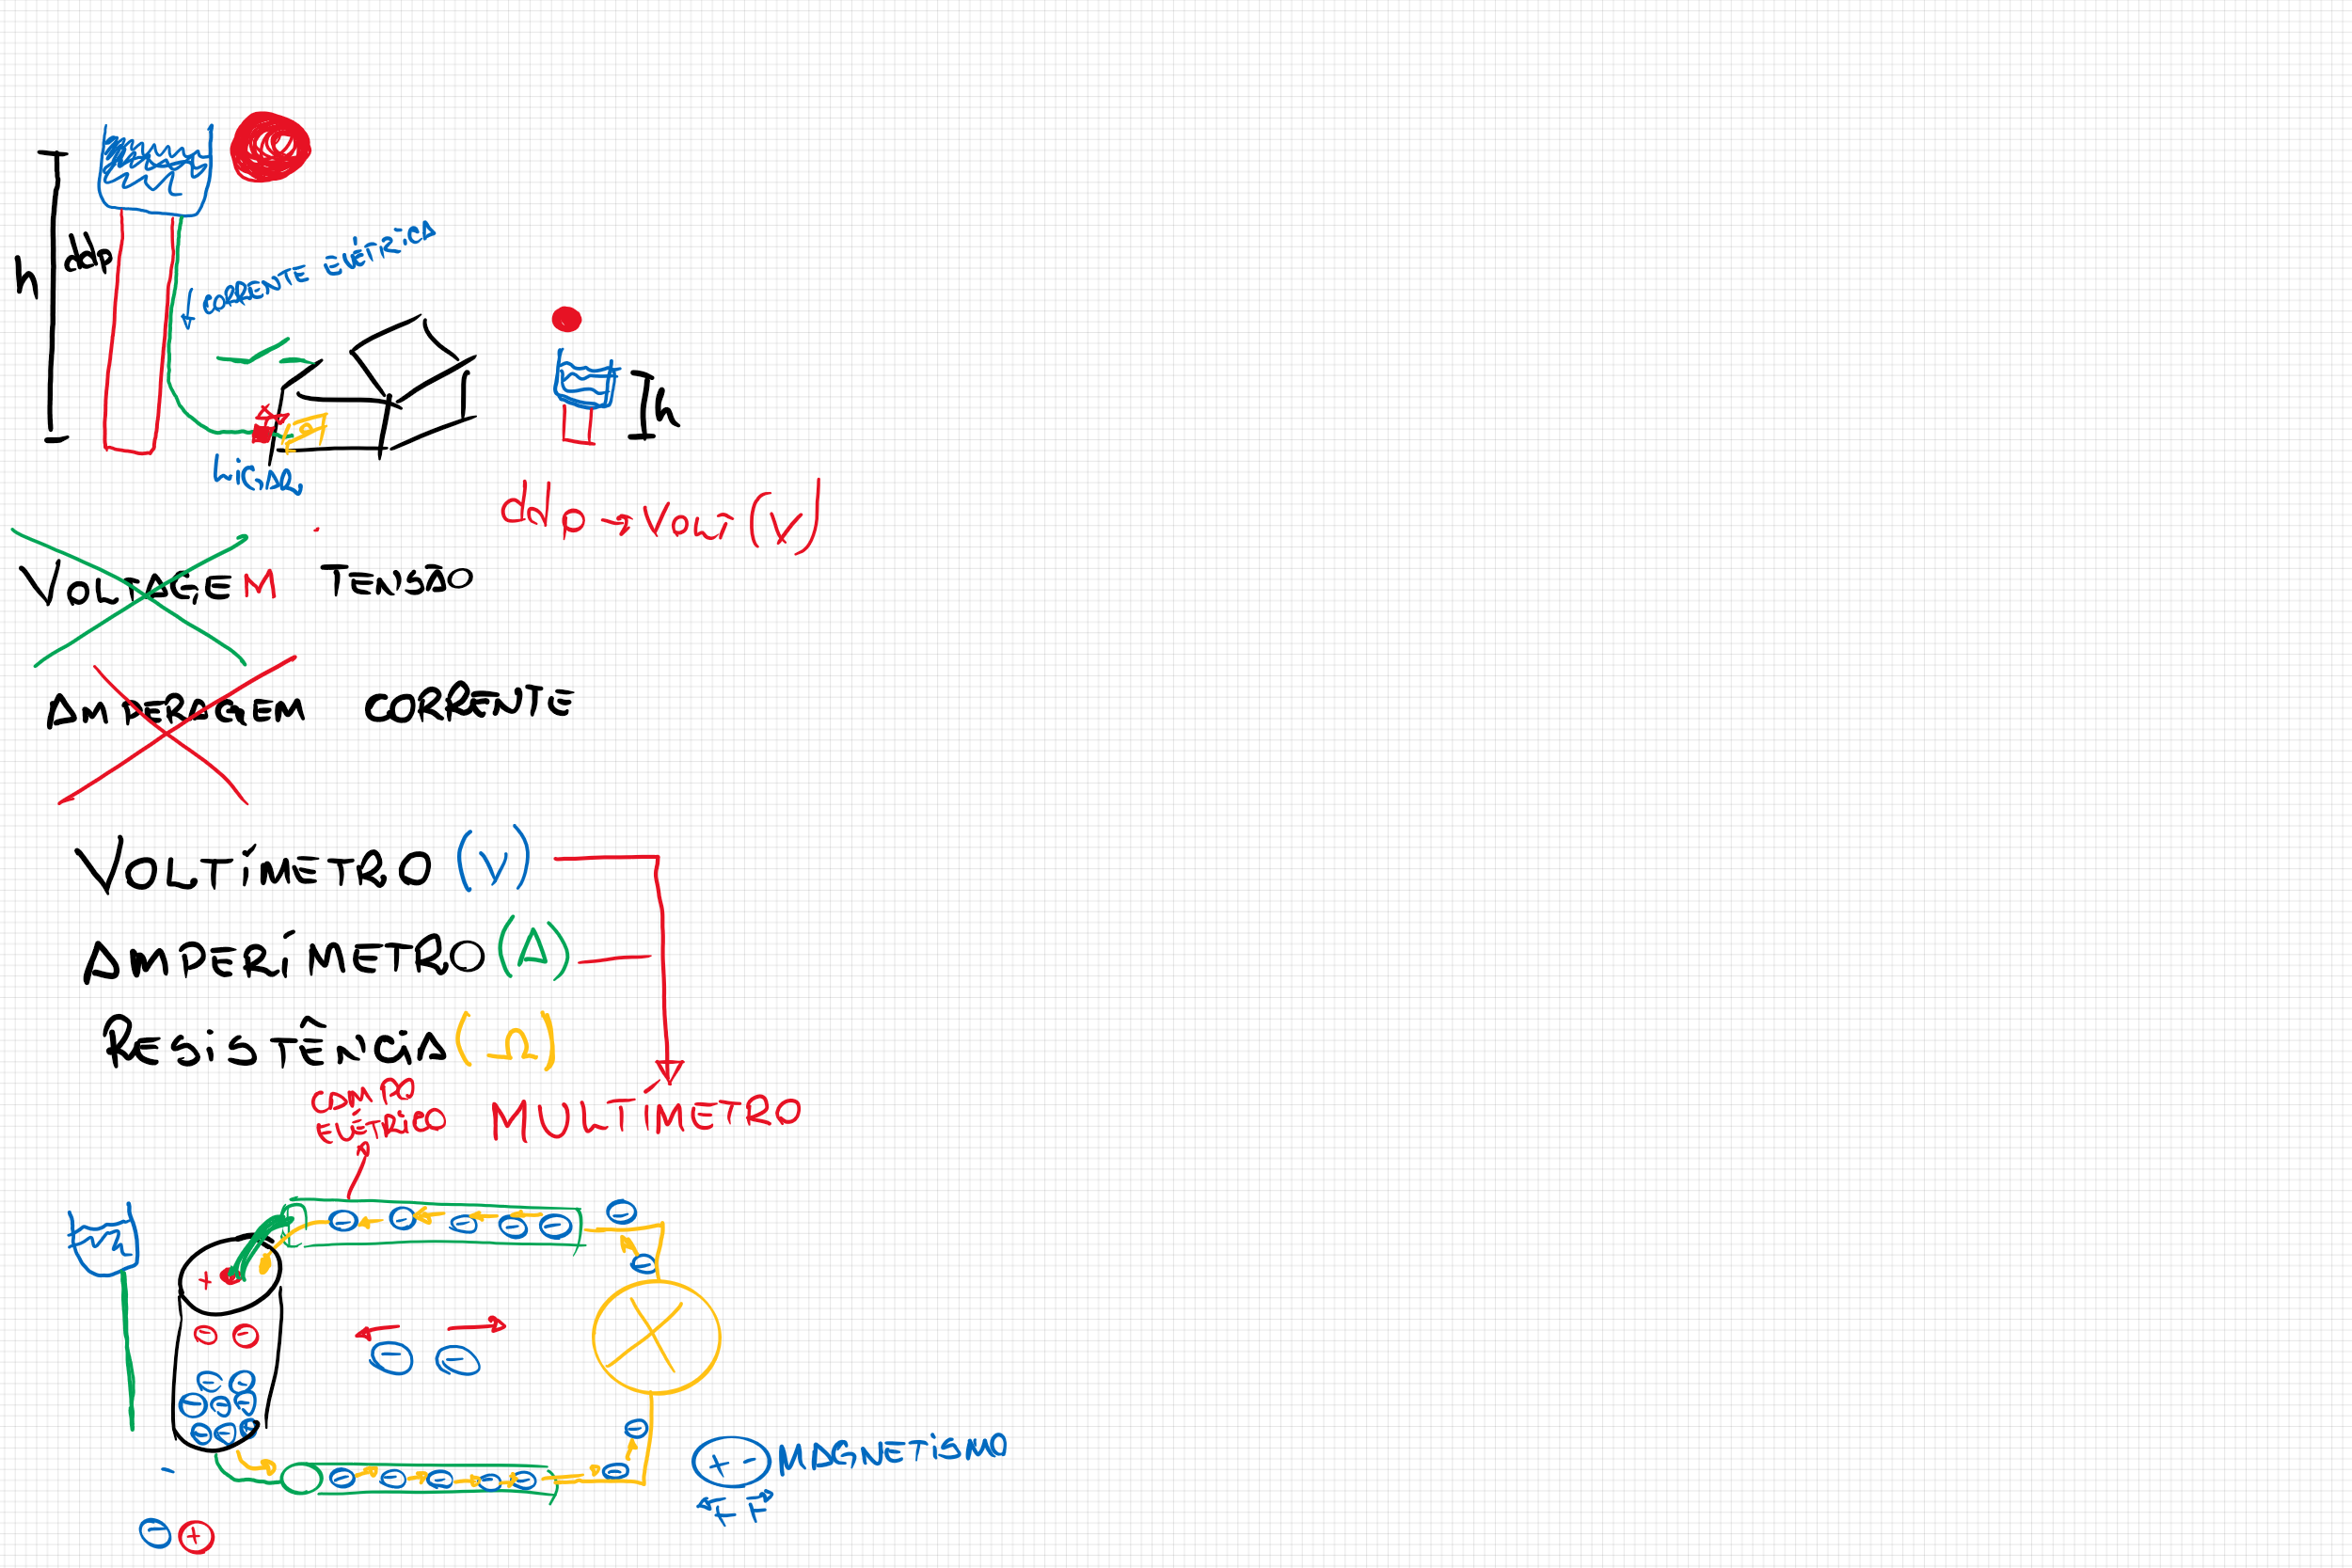 h
ddp
CORRENTE ELÉTRICA
h
LIGAR
ddp → VOLT (V)
VOLTAGEM TENSÃO
AMPERAGEM CORRENTE
VOLTÍMETRO (V)
AMPERÍMETRO (A)
RESISTÊNCIA (Ω)
CAMPO
ELÉTRICO
MULTÍMETRO
+
+ - MAGNETISMO
F F
-
- +